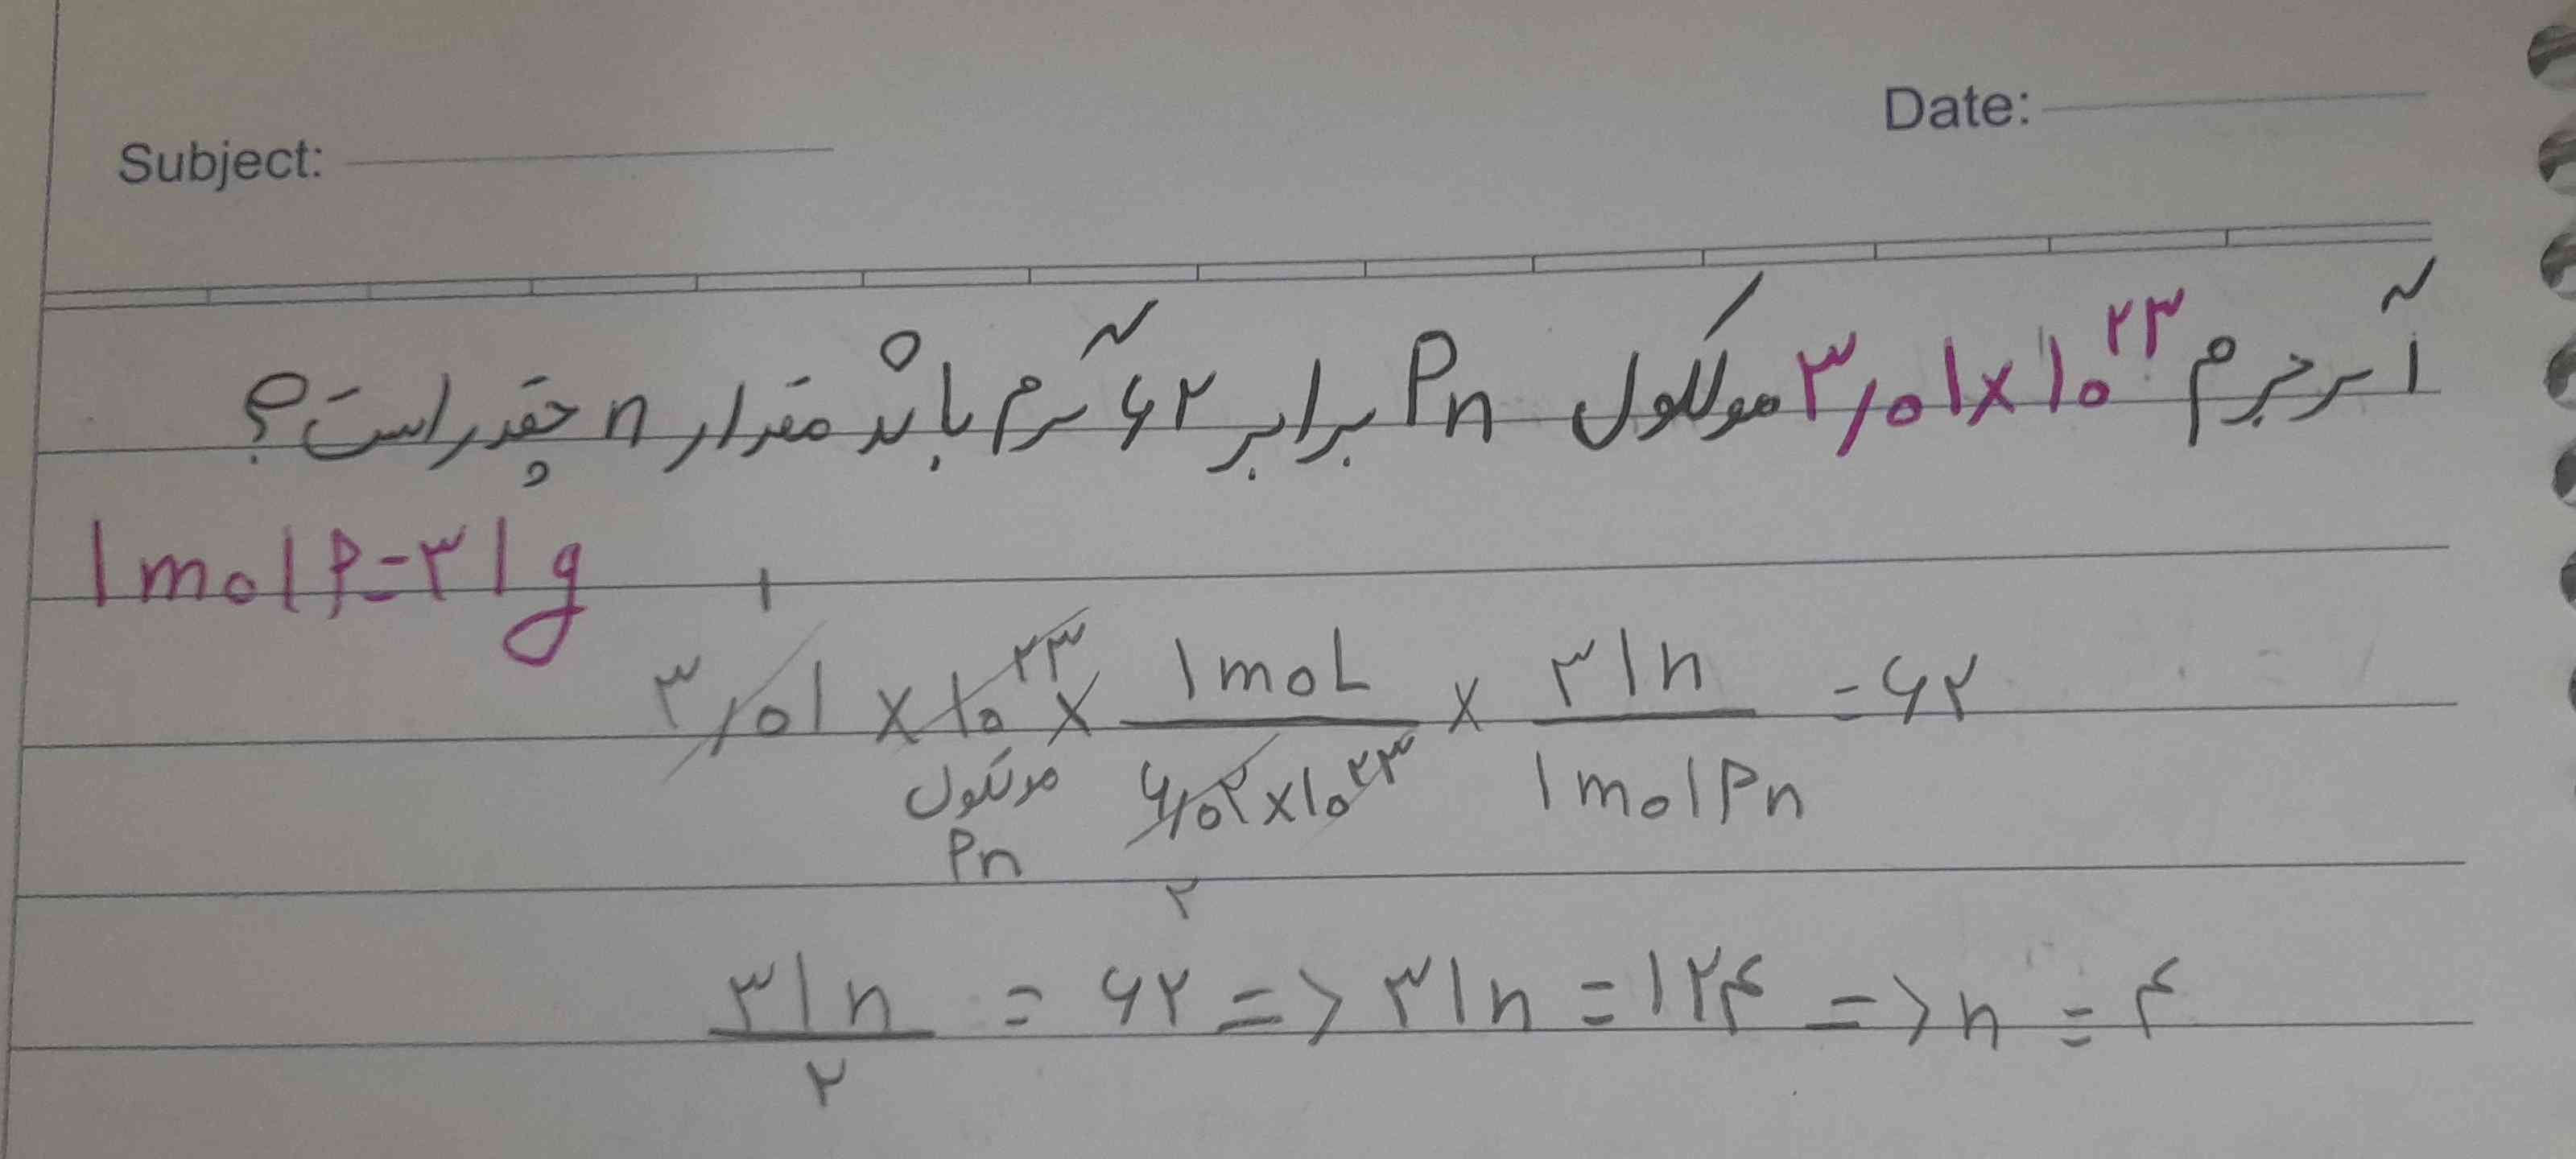 Subject:
Date:
اگر جرم ۳٫۰۱×۱۰^۲۳ مولکول Pn برابر ۶۲ گرم باشد مقدار n چقدر است؟
1 mol P = ۳۱ g
۳٫۰۱ × ۱۰^۲۳ مولکول Pn × 1 moL / ۶٫۰۲×۱۰^۲۳ × ۳۱n / 1 mol Pn = ۶۲
۱
۲
۳۱n / ۲ = ۶۲ => ۳۱n = ۱۲۴ => n = ۴